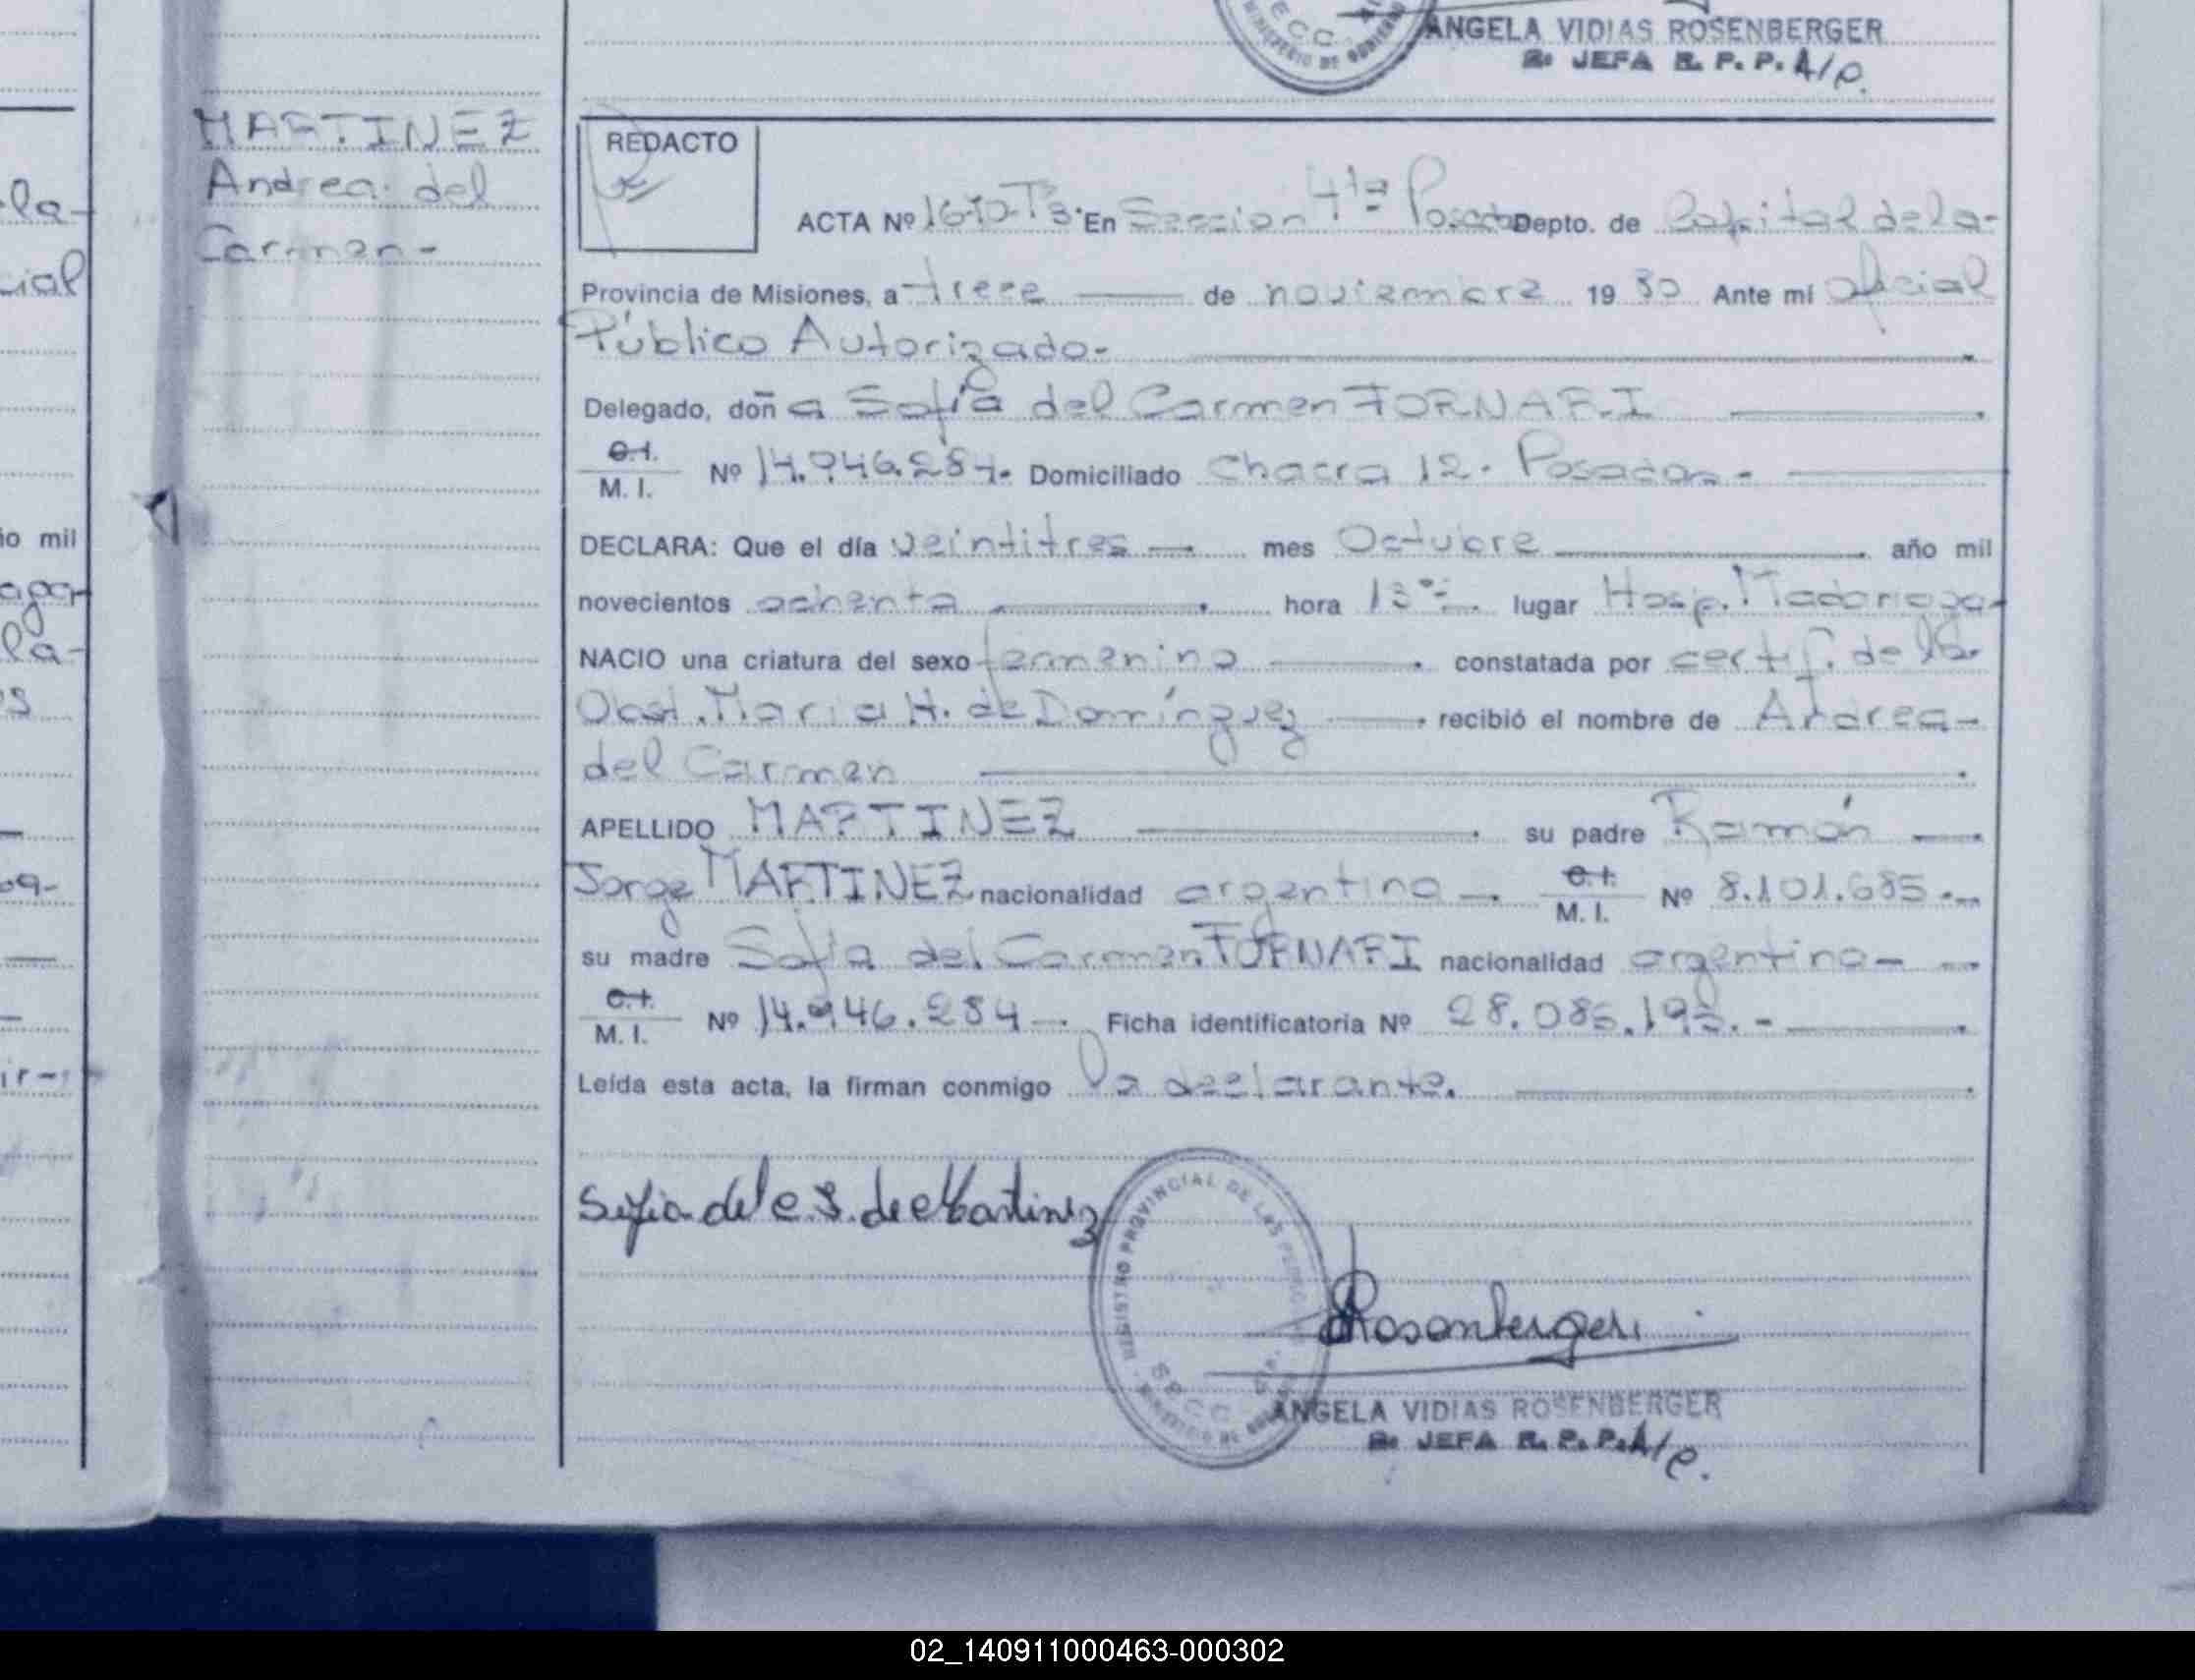 ANGELA VIDIAS ROSENBERGER
JEFA R. P. P. A/c.
MARTINEZ
Andrea del
Carmen-
REDACTO
ACTA Nº En Sección 4ta Posadas Depto. de Capital de la-
Provincia de Misiones, a trece de noviembre 19 80 Ante mi oficial
Público Autorizado-
Delegado, doña Sofía del Carmen FORNARI
C.I.
M. I. Nº 14.946.284. Domiciliado Chacra 12. Posadas.-
DECLARA: Que el día veintitres mes Octubre año mil
novecientos ochenta hora 13 lugar Hosp. Madariaga-
NACIO una criatura del sexo femenino constatada por certif. de la
Obst. María H. de Domínguez recibió el nombre de Andrea-
del Carmen
APELLIDO MARTINEZ su padre Ramón
Jorge MARTINEZ nacionalidad argentina C.I.
M. I. Nº 8.101.685.-
su madre Sofía del Carmen FORNARI nacionalidad argentina-
C.I.
M. I. Nº 14.946.284 Ficha identificatoria Nº
Leída esta acta, la firman conmigo la declarante.
Sofia del C. de Martinez
REGISTRO PROVINCIAL DE LAS
Rosenberger
ANGELA VIDIAS ROSENBERGER
JEFA R. P. P. A/c.
02_140911000463-000302